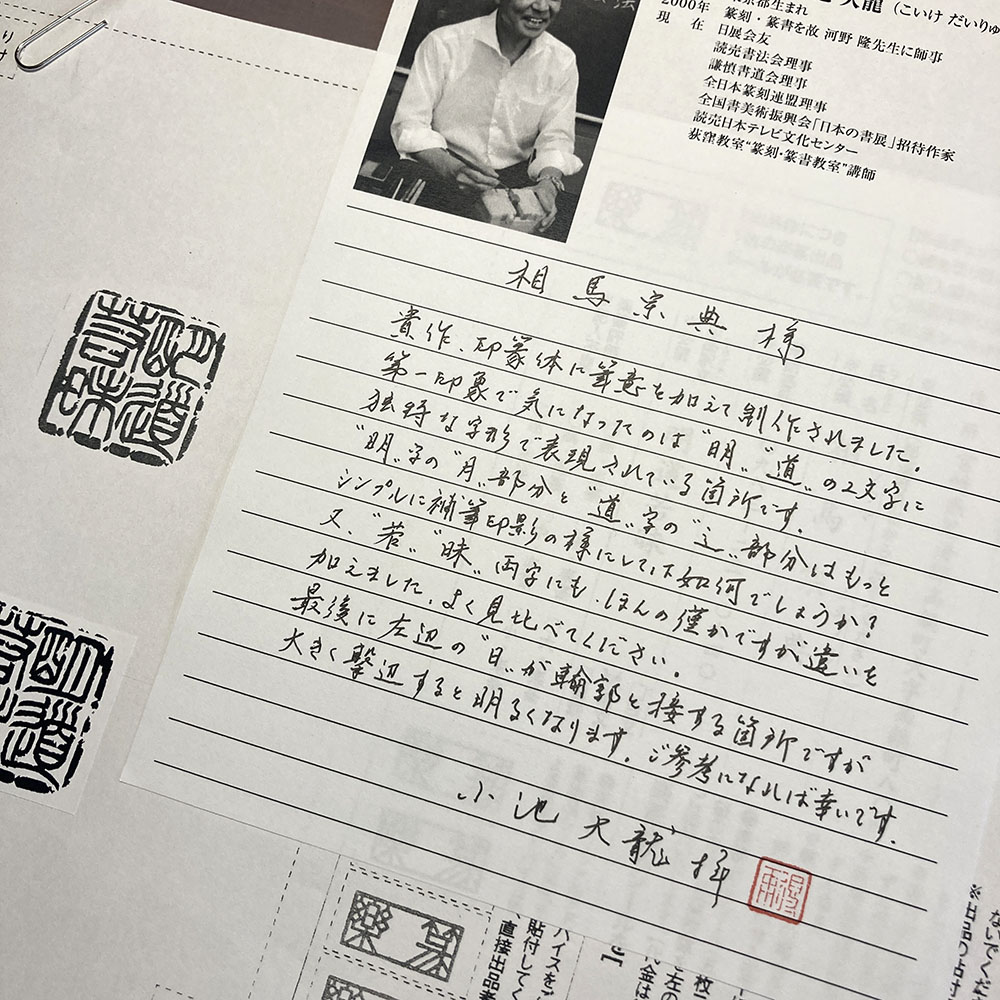 大龍（こいけ だいりゅ
東京都生まれ
2000年 篆刻・篆書を故 河野 隆先生に師事
現 在 日展会友
読売書法会理事
謙慎書道会理事
全日本篆刻連盟理事
全国書美術振興会「日本の書展」招待作家
読売日本テレビ文化センター
荻窪教室“篆刻・篆書教室”講師
相馬宗典様
貴作、印篆体に筆意を加えて制作されました。
第一印象で気になったのは“明”“道”の2文字に
独特な字形で表現されている箇所です。
“明”字の“月”部分と“道”字の“辶”部分はもっと
シンプルに補筆印影の様にしては如何でしょうか？
又“若”“昧”両字にも、ほんの僅かですが違いを
加えました。よく見比べてください。
最後に左辺の“日”が輪郭と接する箇所ですが
大きく撃辺すると明るくなります。ご参考になれば幸いです。
小池大龍拝
明道若昧
篆楽
貼付してく
直接出品者
ないでくだ